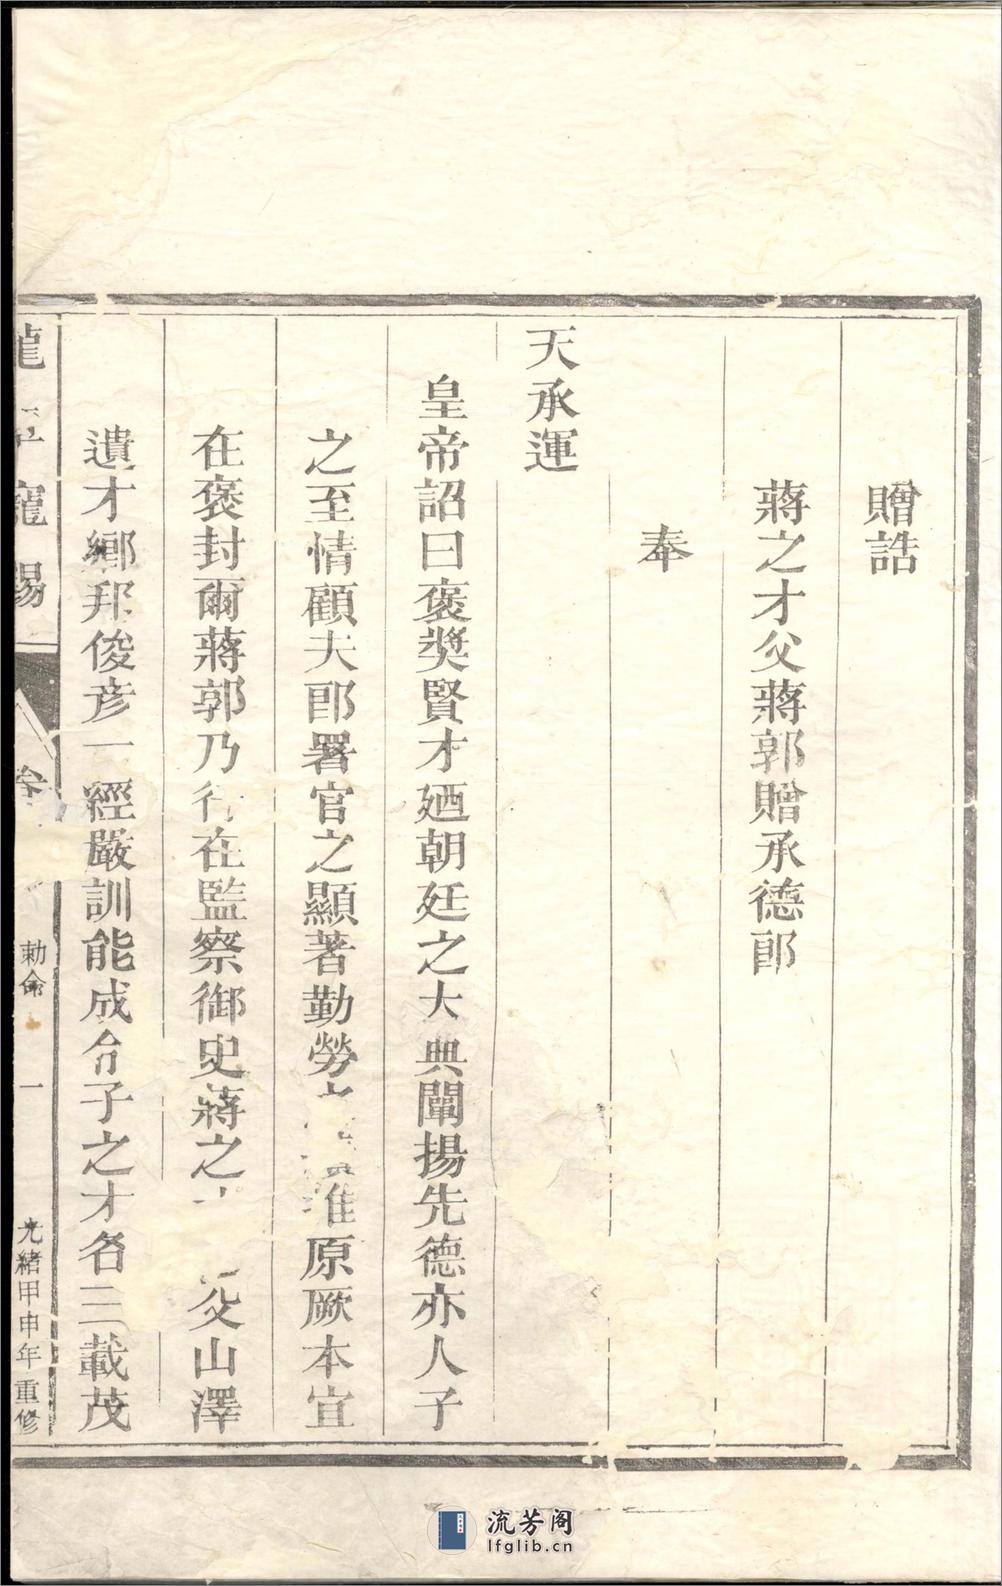 贈誥
蔣之才父蔣郭贈承德郎
奉
天承運
皇帝詔曰褒奬賢才廼朝廷之大典闡揚先德亦人子
之至情顧夫郎署官之顯著勤勞惟原厥本宜
在褒封爾蔣郭乃行在監察御史蔣之父山澤
遺才鄉邦俊彦一經嚴訓能成令子之才名三載茂
龍寵錫
卷
勅命
一
光緒甲申年重修
流芳阁
lfglib.cn